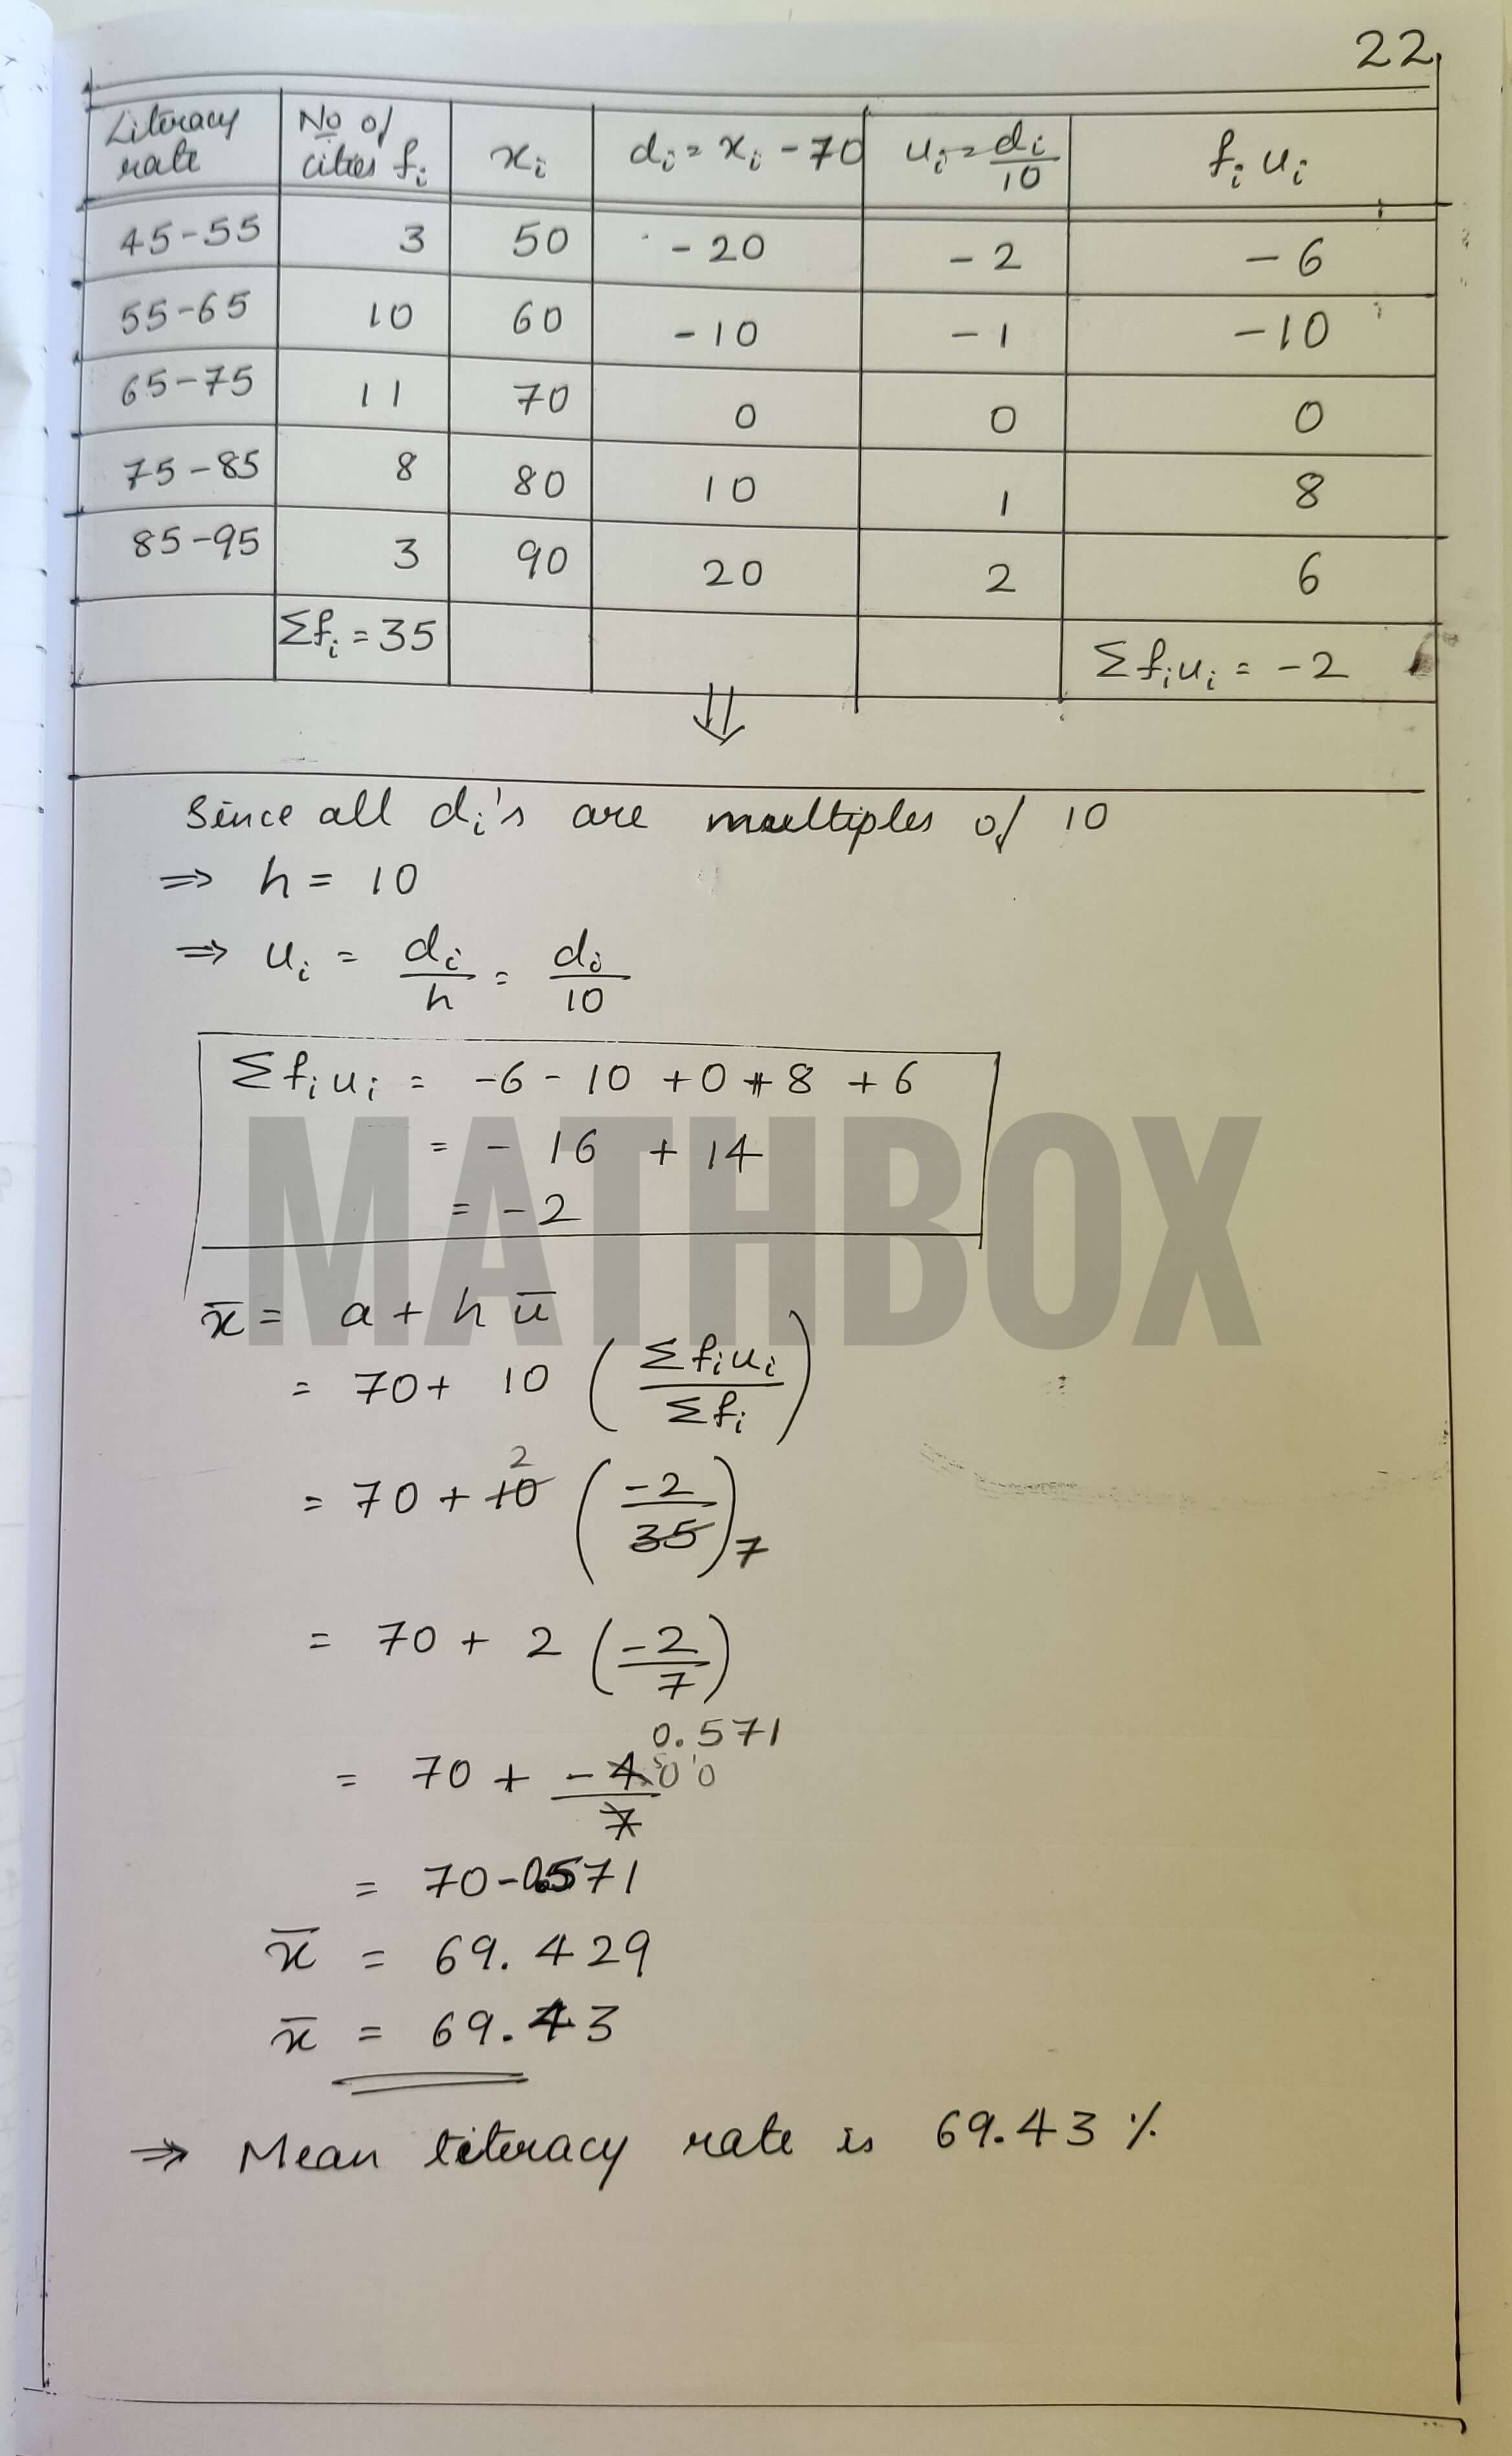 22
Literacy rate | No of cities fᵢ | xᵢ | dᵢ = xᵢ - 70 | uᵢ = dᵢ/10 | fᵢ uᵢ
45-55 | 3 | 50 | -20 | -2 | -6
55-65 | 10 | 60 | -10 | -1 | -10
65-75 | 11 | 70 | 0 | 0 | 0
75-85 | 8 | 80 | 10 | 1 | 8
85-95 | 3 | 90 | 20 | 2 | 6
Σfᵢ = 35 | Σfᵢuᵢ = -2
⇓
Since all dᵢ's are multiples of 10
⇒ h = 10
⇒ uᵢ = dᵢ/h = dᵢ/10
Σfᵢuᵢ = -6 - 10 + 0 + 8 + 6
= - 16 + 14
= -2
MATHBOX
x̄ = a + h ū
= 70 + 10 (Σfᵢuᵢ/Σfᵢ)
2
= 70 + 10 (-2/35) 7
= 70 + 2 (-2/7)
0.571
= 70 + -4.00/7
= 70-0.571
x̄ = 69.429
x̄ = 69.43
⇒ Mean literacy rate is 69.43 %